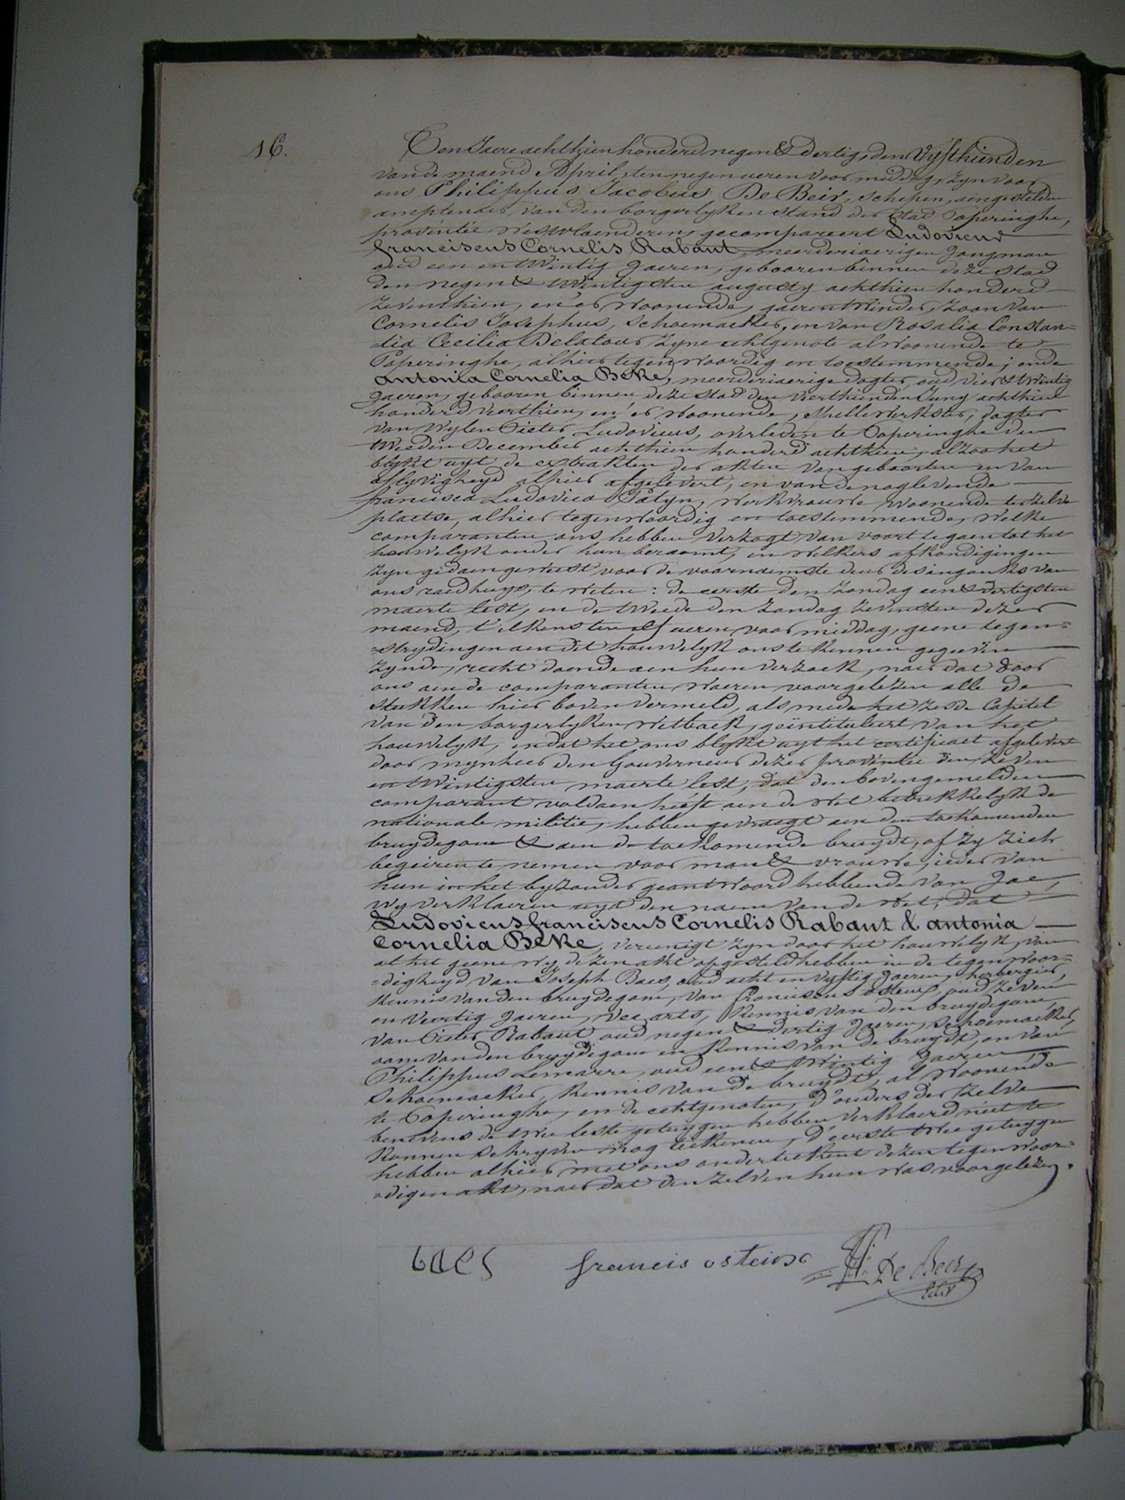 16.
Ten Jaere achthien honderd negen & dertig, den Vyfthienden
van de maend April, ten negen ueren voormiddag, zyn voor
ons Philippus Jacobus De Beir, schepen, aengestelden
amptenaer van den borgerlyken stand der stad Poperinghe,
provintie Westvlaenderen, gecompareert Ludovicus
franciscus Cornelis Rabaut, meerderiaerigen jongman
oud een en twintig Jaeren, gebooren binnen deze stad
den negen & twintigsten augusty achthien honderd
zeventhien, en er woonende, gaerentwinder, zoon van
Cornelis Josephus, schoemaeker, en van Rosalia Constan-
dia Cecilia Delatour zyne echtgenote al woonende te
Poperinghe, alhier tegenwoordig en toestemmende; ende
antonia Cornelia Beke, meerderiaerige dogter, oud vier & twintig
Jaeren, gebooren binnen deze stad den Vierthienden Juny achthien
honderd vierthien, en er woonende, spellewerkster, dogter
van wylen Pieter Ludovicus, overleden te Poperinghe den
tweeden December achthien honderd achthien, alzoo het
blykt uyt de extrakten der akten van geboorten en van
aflyvigheyd alhier afgelevert, en van de noglevende
francisca Ludovica Patyn, werkvrouwe woonende ter zelve
plaetse, alhier tegenwoordig en toestemmende, welke
comparanten ons hebben verzogt van voort te gaen tot het
houwelyk onder hun beraemt, en welkers afkondigingen
zyn gedaen geweest voor de voornaemste deur des ingankts van
ons raedhuys, te weten: de eerste den zondag een & dertigsten
maerte lest, en de tweede den zondag zevensten dezer
maend, t'elkens ten elf ueren voormiddag, geene tegen-
strydingen aen dit houwelyk ons te kennen gegeven
zynde, recht doende aen hun verzoek, naer dat door
ons aen de comparanten waeren voorgelezen alle de
stukken hier boven vermeld, als mede het zesde Capitel
van den borgerlyken wetboek, geïntituleert van het
houwelyk, en dat het ons blykt uyt het certificaet afgelevert
door mynheer den Gouverneur dezer provintie den zeven
en twintigsten maerte lest, dat den bovengemelden
comparant voldaen heeft aen de wet betrekkelyk de
nationale militie, hebben gevraegt aen den toekomenden
bruydegom & aen de toekomende bruyd, of zy zich
begeiren te nemen voor man & vrouwe, ieder van
hun in het byzonder geantwoord hebbende van Jae,
wy verklaeren uyt den naem van de wet, dat
Ludovicus franciscus Cornelis Rabaut & antonia
Cornelia Beke, vereenigt zyn door het houwelyk, van
al het geene wy dezen akt opgesteld hebben in de tegenwoor-
digheyd van Joseph Baes, oud acht en vyftig Jaeren, herbergier,
kennis van den bruydegom, van franciscus osteux, oud zeven
en veertig Jaeren, vee arts, kennis van den bruydegom,
van Pieter Rabaut, oud negen & dertig Jaeren, schoemaeker,
oom van den bruydegom en kennis van de bruyd, en van
Philippus Lemarre, oud een & twintig Jaeren
schoemaeker, kennis van de bruyd, al woonende
te Poperinghe, en de echtgenoten, d'ouders der zelve
benevens de twee leste getuygen hebben verklaerd niet te
konnen schryven nog teekenen, d'eerste twee getuygen
hebben alhier met ons onderteekent dezen tegenwoor-
digen akt, naer dat den zelven hun was voorgelezen.
baes francis osteux Ph. De Beir